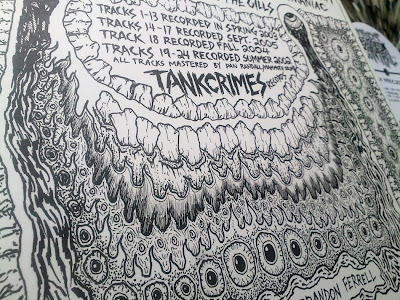 THE GILLS
MANIAC
TRACKS 1-13 RECORDED IN SPRING 2003
TRACKS 14-17 RECORDED SEPT. 2005
TRACK 18 RECORDED FALL 2001
TRACKS 19-24 RECORDED SUMMER 2002
ALL TRACKS MASTERED BY DAN RANDALL/MAMMOTH SOUND
TANKCRIMES
RECORDS
FERRELL